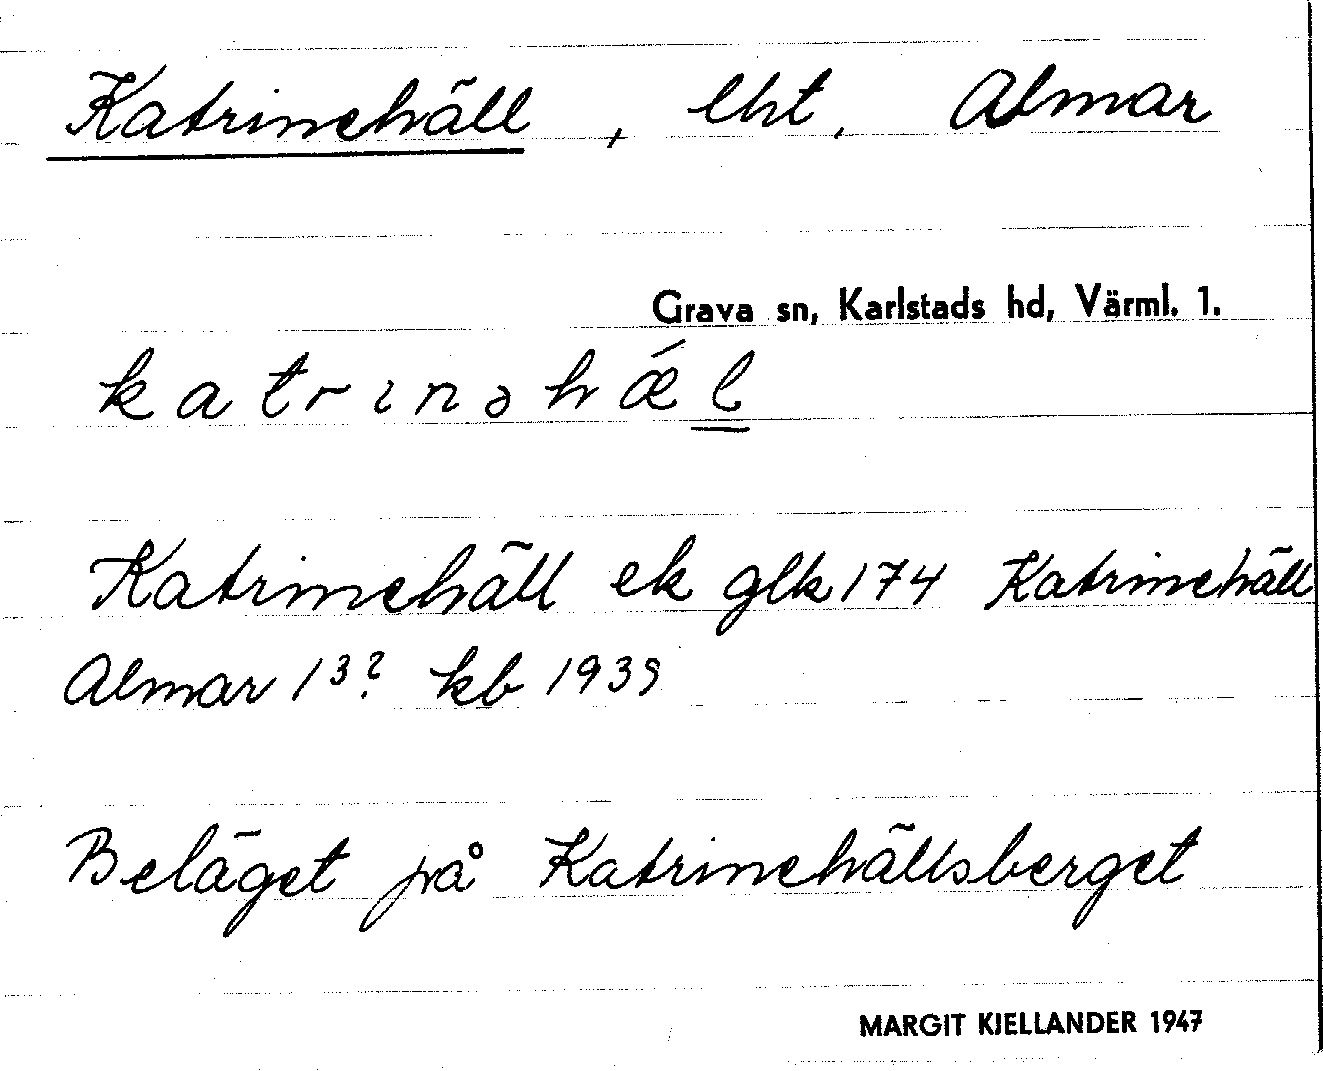 Katrinehäll, lht, Almar
Grava sn, Karlstads hd, Värml. l.
katrinəhǽl
Katrinehäll ek glk 174 Katrinehäll
Almar 1³? kb 1939
Beläget på Katrinehällsberget
MARGIT KJELLANDER 1947